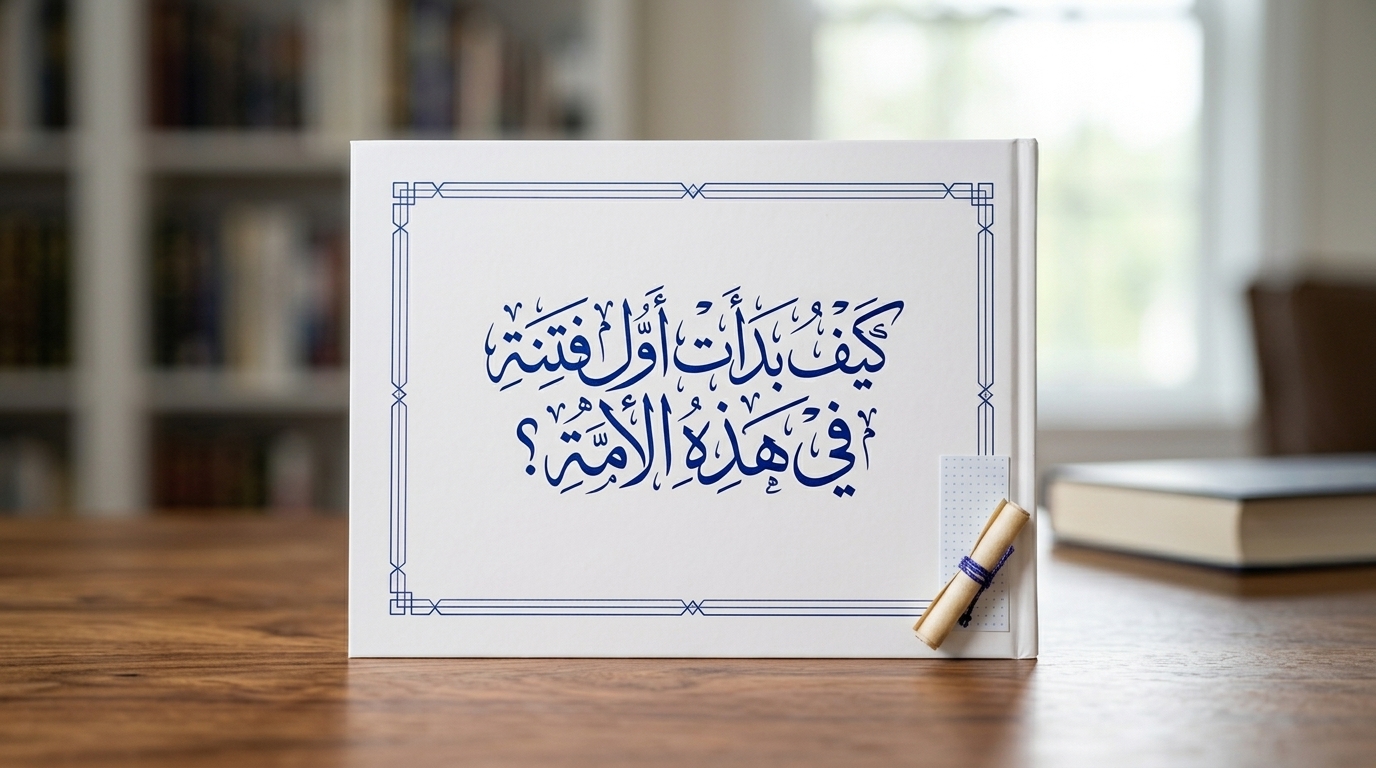 كَيْفُ بَدَأَتْ أَوَّل فتَنِنَةِ
فيْ هَذِهُِ الأمَّةُِ؟